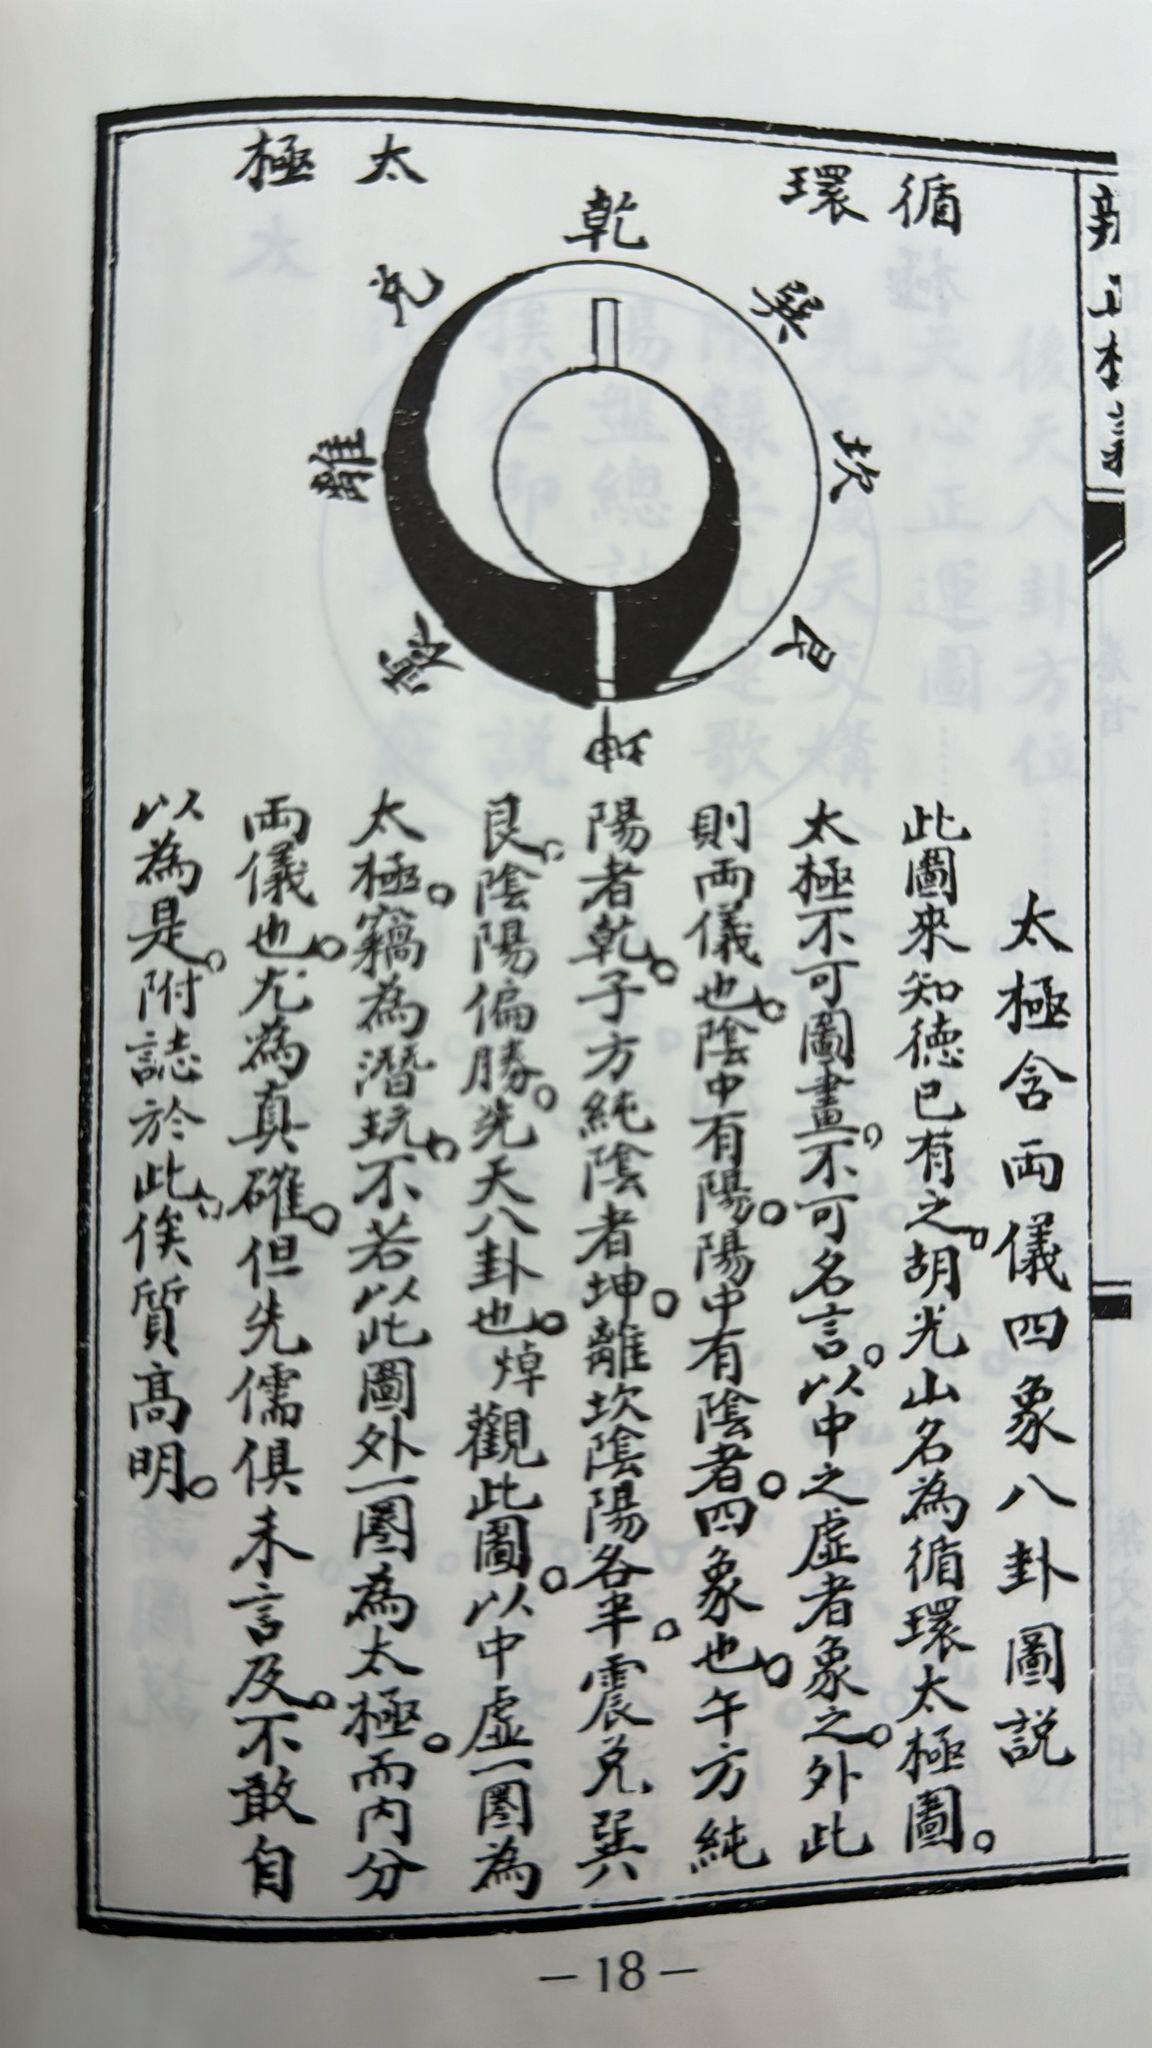 循環
太極
乾
兌
巽
離
坎
震
艮
坤
太極含兩儀四象八卦圖説
此圖來知德已有之。胡光山名為循環太極圖。
太極不可圖畫。不可名言。以中之虛者象之。外此
則兩儀也。陰中有陽。陽中有陰者。四象也。午方純
陽者乾。子方純陰者坤。離坎陰陽各半。震兌巽
艮。陰陽偏勝。先天八卦也。焯觀此圖。以中虛一圈為
太極。竊為潛玩。不若以此圖外一圈為太極。而內分
兩儀也。尤為真確。但先儒俱未言及。不敢自
以為是。附誌於此。俟質高明。
-18-